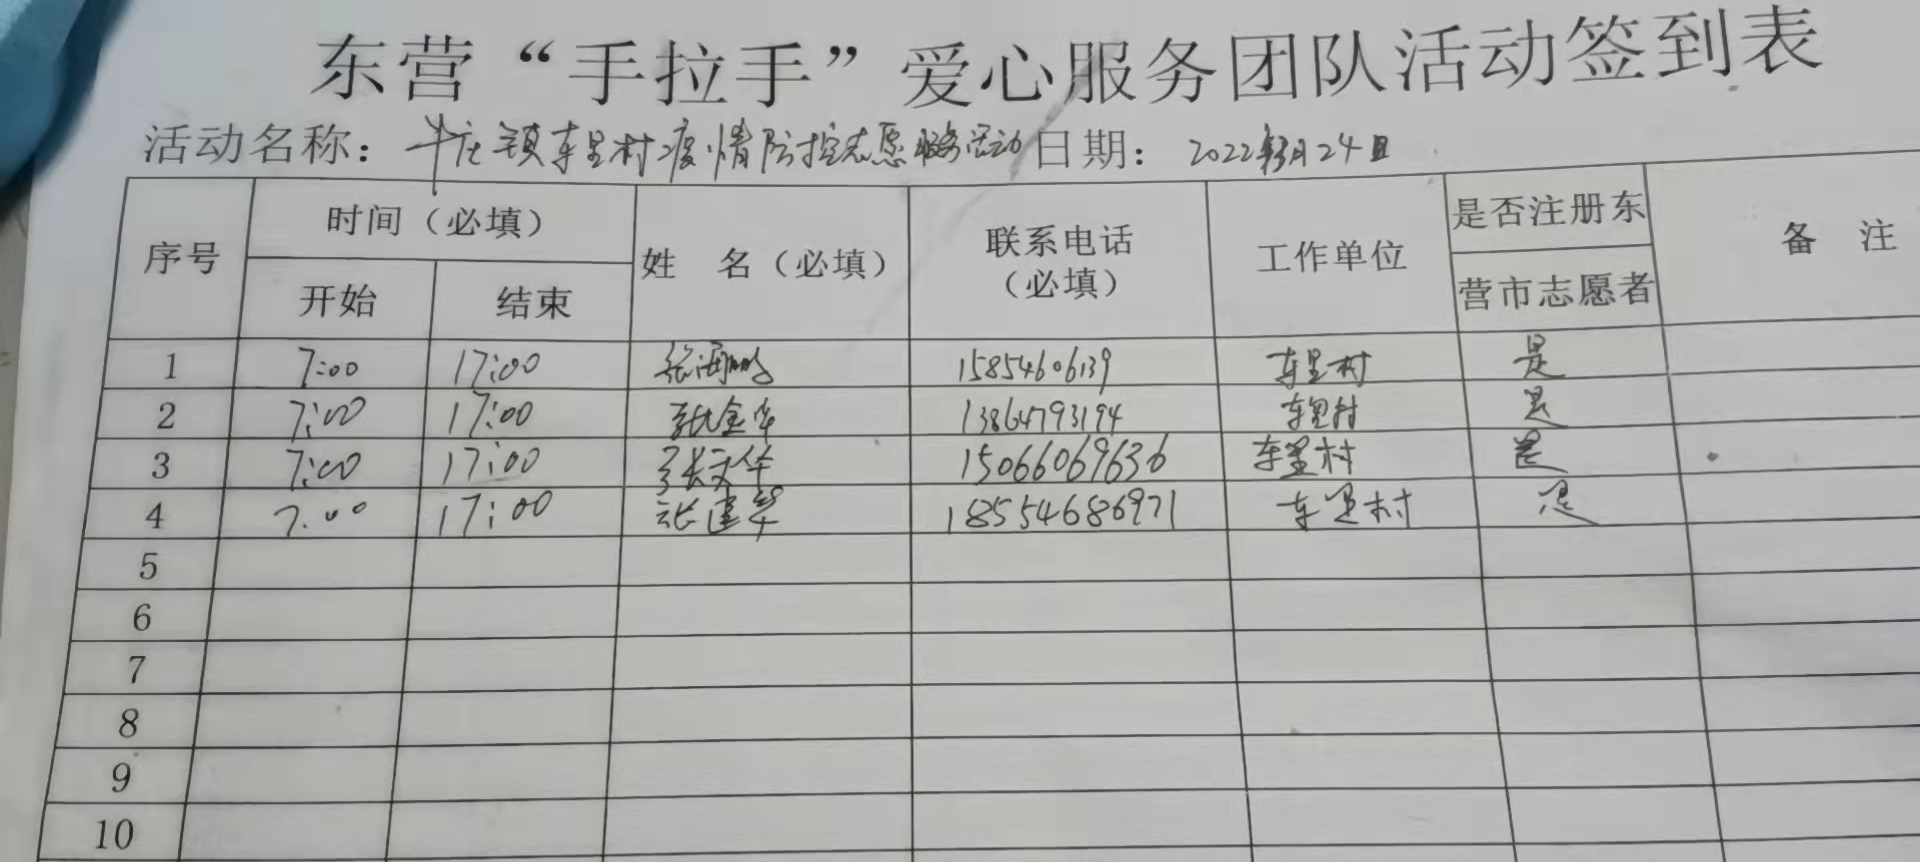 东营“手拉手”爱心服务团队活动签到表
活动名称：牛庄镇车里村疫情防控志愿服务活动 日期：2022年3月24日
序号 时间（必填） 姓 名（必填） 联系电话（必填） 工作单位 是否注册东营市志愿者 备 注
开始 结束
1 7:00 17:00 张海鹏 15854606139 车里村 是
2 7:00 17:00 张金华 13864793194 车里村 是
3 7:00 17:00 张文华 15066069636 车里村 是
4 7:00 17:00 张建华 18554686971 车里村 是
5
6
7
8
9
10